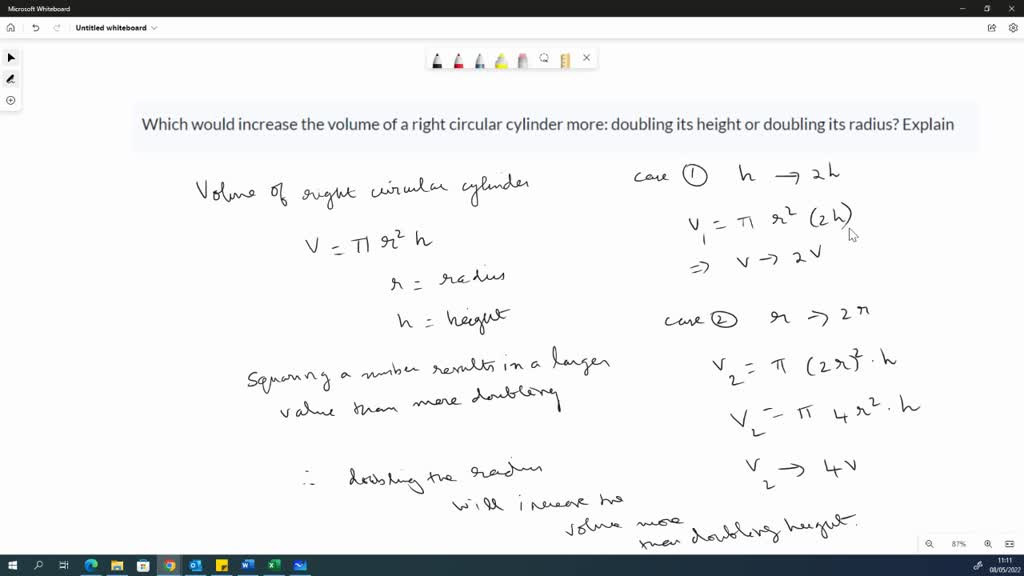 Microsoft Whiteboard
Untitled whiteboard
Which would increase the volume of a right circular cylinder more: doubling its height or doubling its radius? Explain
Volume of right circular cylinder
V = π r² h
r = radius
h = height
Squaring a number results in a larger
value than mere doubling
∴ doubling the radius
will increase the
volume more
than doubling height.
case ① h → 2h
V₁ = π r² (2h)
⇒ V → 2V
case ② r → 2r
V₂ = π (2r)² · h
V₂ = π 4r² · h
V₂ → 4V
87%
11:11
08/05/2022